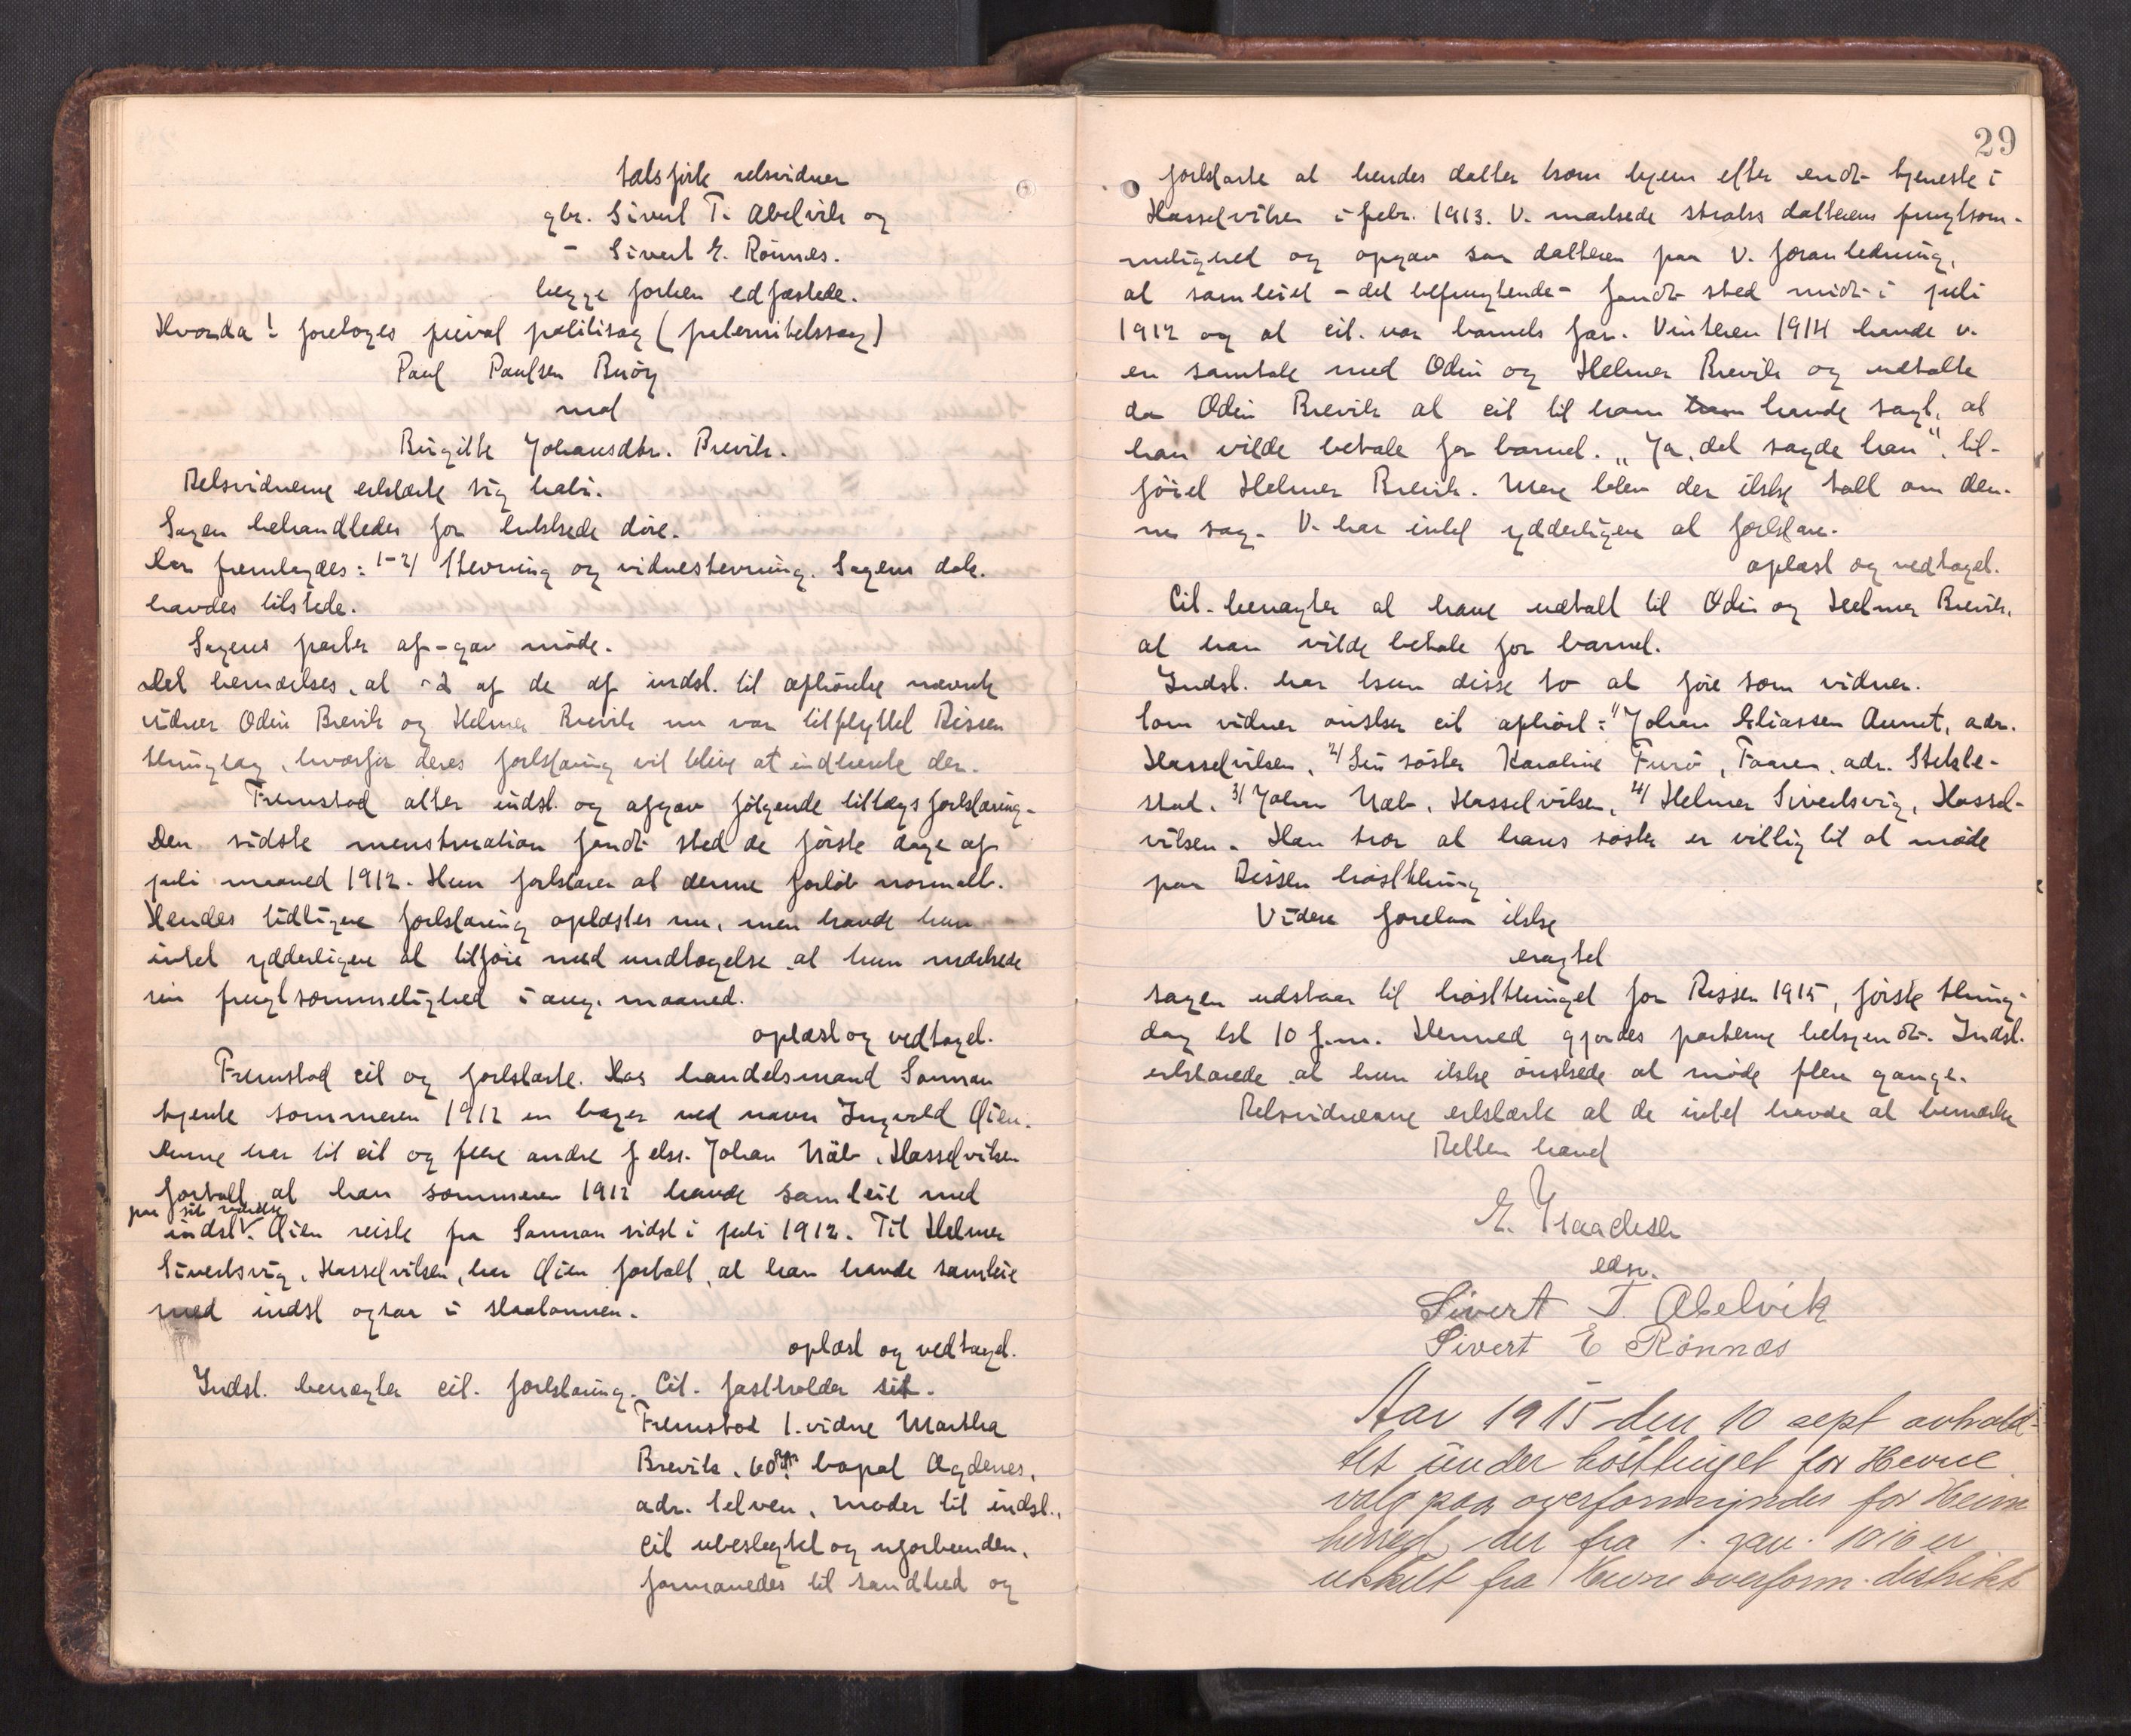 talsfirte retsvidner
gbr. Sivert T. Abelvik og
- Sivert E. Rönnes.
begge forhen edfæstede.
Hvorda! foretoges privat politisag (paternitetssag)
Paul Paulsen Buöy
mod
Birgitte Johansdtr. Brevik.
Retsvidnerne erklærte sig habi.
Sagen behandledes for lukkede döre.
Der fremlagdes: 1-2/ Stevning og vidnestevning. Sagens dok.
havdes tilstede.
Sagens parter af-gav möde.
Det bemærkes, at -2 af de af indst. til afhörelse nævnte
vidner Odin Brevik og Helmer Brevik nu var tilflyttet Rissen
thinglag, hvorfor deres forklaring vil blive at indhente der.
Fremstod atter indst. og afgav fölgende tillægsforklaring.
Den sidste menstruation fandt sted de förste dage af
juli maaned 1912. Hun forklarer at denne forlöb normalt.
Hendes tidligere forklaring oplæstes nu, men havde hun
intet ydderligere at tilföie med undtagelse at hun mærkede
sin frugtsommelighed i aug. maaned.
oplæst og vedtaget.
Fremstod cit og forklarte. Hos handelsmand Sannan
tjente sommeren 1912 en bager ved navn Ingvald Öien.
Denne har til cit og flere andre f. eks. Johan Næb, Hasselviken
fortalt at han sommeren 1912 havde samleie med
paa sit værelse
indst. Öien reiste fra Sannan sidst i juli 1912. Til Helmer
Sivertsvig, Hasselviken, har Öien fortalt, at han havde samleie
med indst ogsaa i slaatonnen.
oplæst og vedtaget.
Indst. benegter cit. forklaring. Cit. fastholder sit.
Fremstod 1. vidne Martha
Brevik, 60 bopæl Agdenes,
adr. Selven, moder til indst.,
Cit ubeslegtet og uforbunden,
formanedes til sandhed og
29
forklarte at hendes datter kom hjem efter endt tjeneste i
Hasselviken i febr. 1913. V. mærkede straks datterens frugtsom-
melighed og opgav saa datteren paa V. foranledning,
at samleiet - det befrugtende - fandt sted midt i juli
1912 og at cit. var barnets far. Vinteren 1914 havde v.
en samtale med Odin og Helmer Brevik og udtalte
da Odin Brevik at cit til ham ham havde sagt, at
han vilde betale for barnet. „Ja, det sagde han“, til-
föiet Helmer Brevik. Mere blev der ikke talt om den-
ne sag. V. har intet ydderligere at forklare.
oplæst og vedtaget.
Cit. benægter at have udtalt til Odin og Helmer Brevik,
at han vilde betale for barnet.
Indst. har kun disse to at före som vidner.
Som vidner önsker cit afhört: 1/ Johan Eliassen Aunet, adr.
Hasselviken, 2/ Sin söster Karoline Furö, Faaren, adr. Stokke-
stad, 3/ Johan Næb, Hasselviken, 4/ Helmer Sivertsvig, Hassel-
viken. Han tror at hans söster er villig til at möde
paa Rissen höstthing
Videre forelaa ikke
eragtet
sagen udstaar til höstthinget for Rissen 1915, förste thing-
dag kl 10 f.m. Hermed gjordes parterne bekjendt. Indst.
erklærede at hun ikke önskede at möde flere gange.
Retsvidnerne erklærte at de intet havde at bemærke
Retten hævet
edsv.
Sivert T. Abelvik
Sivert E Rönnæs
Aar 1915 den 10 sept avhold-
tes under hösttinget for Hevne
valg paa overformynder for Heim
herred, der fra 1. jan. 1916 er
utskilt fra Hevne overform. distrikt